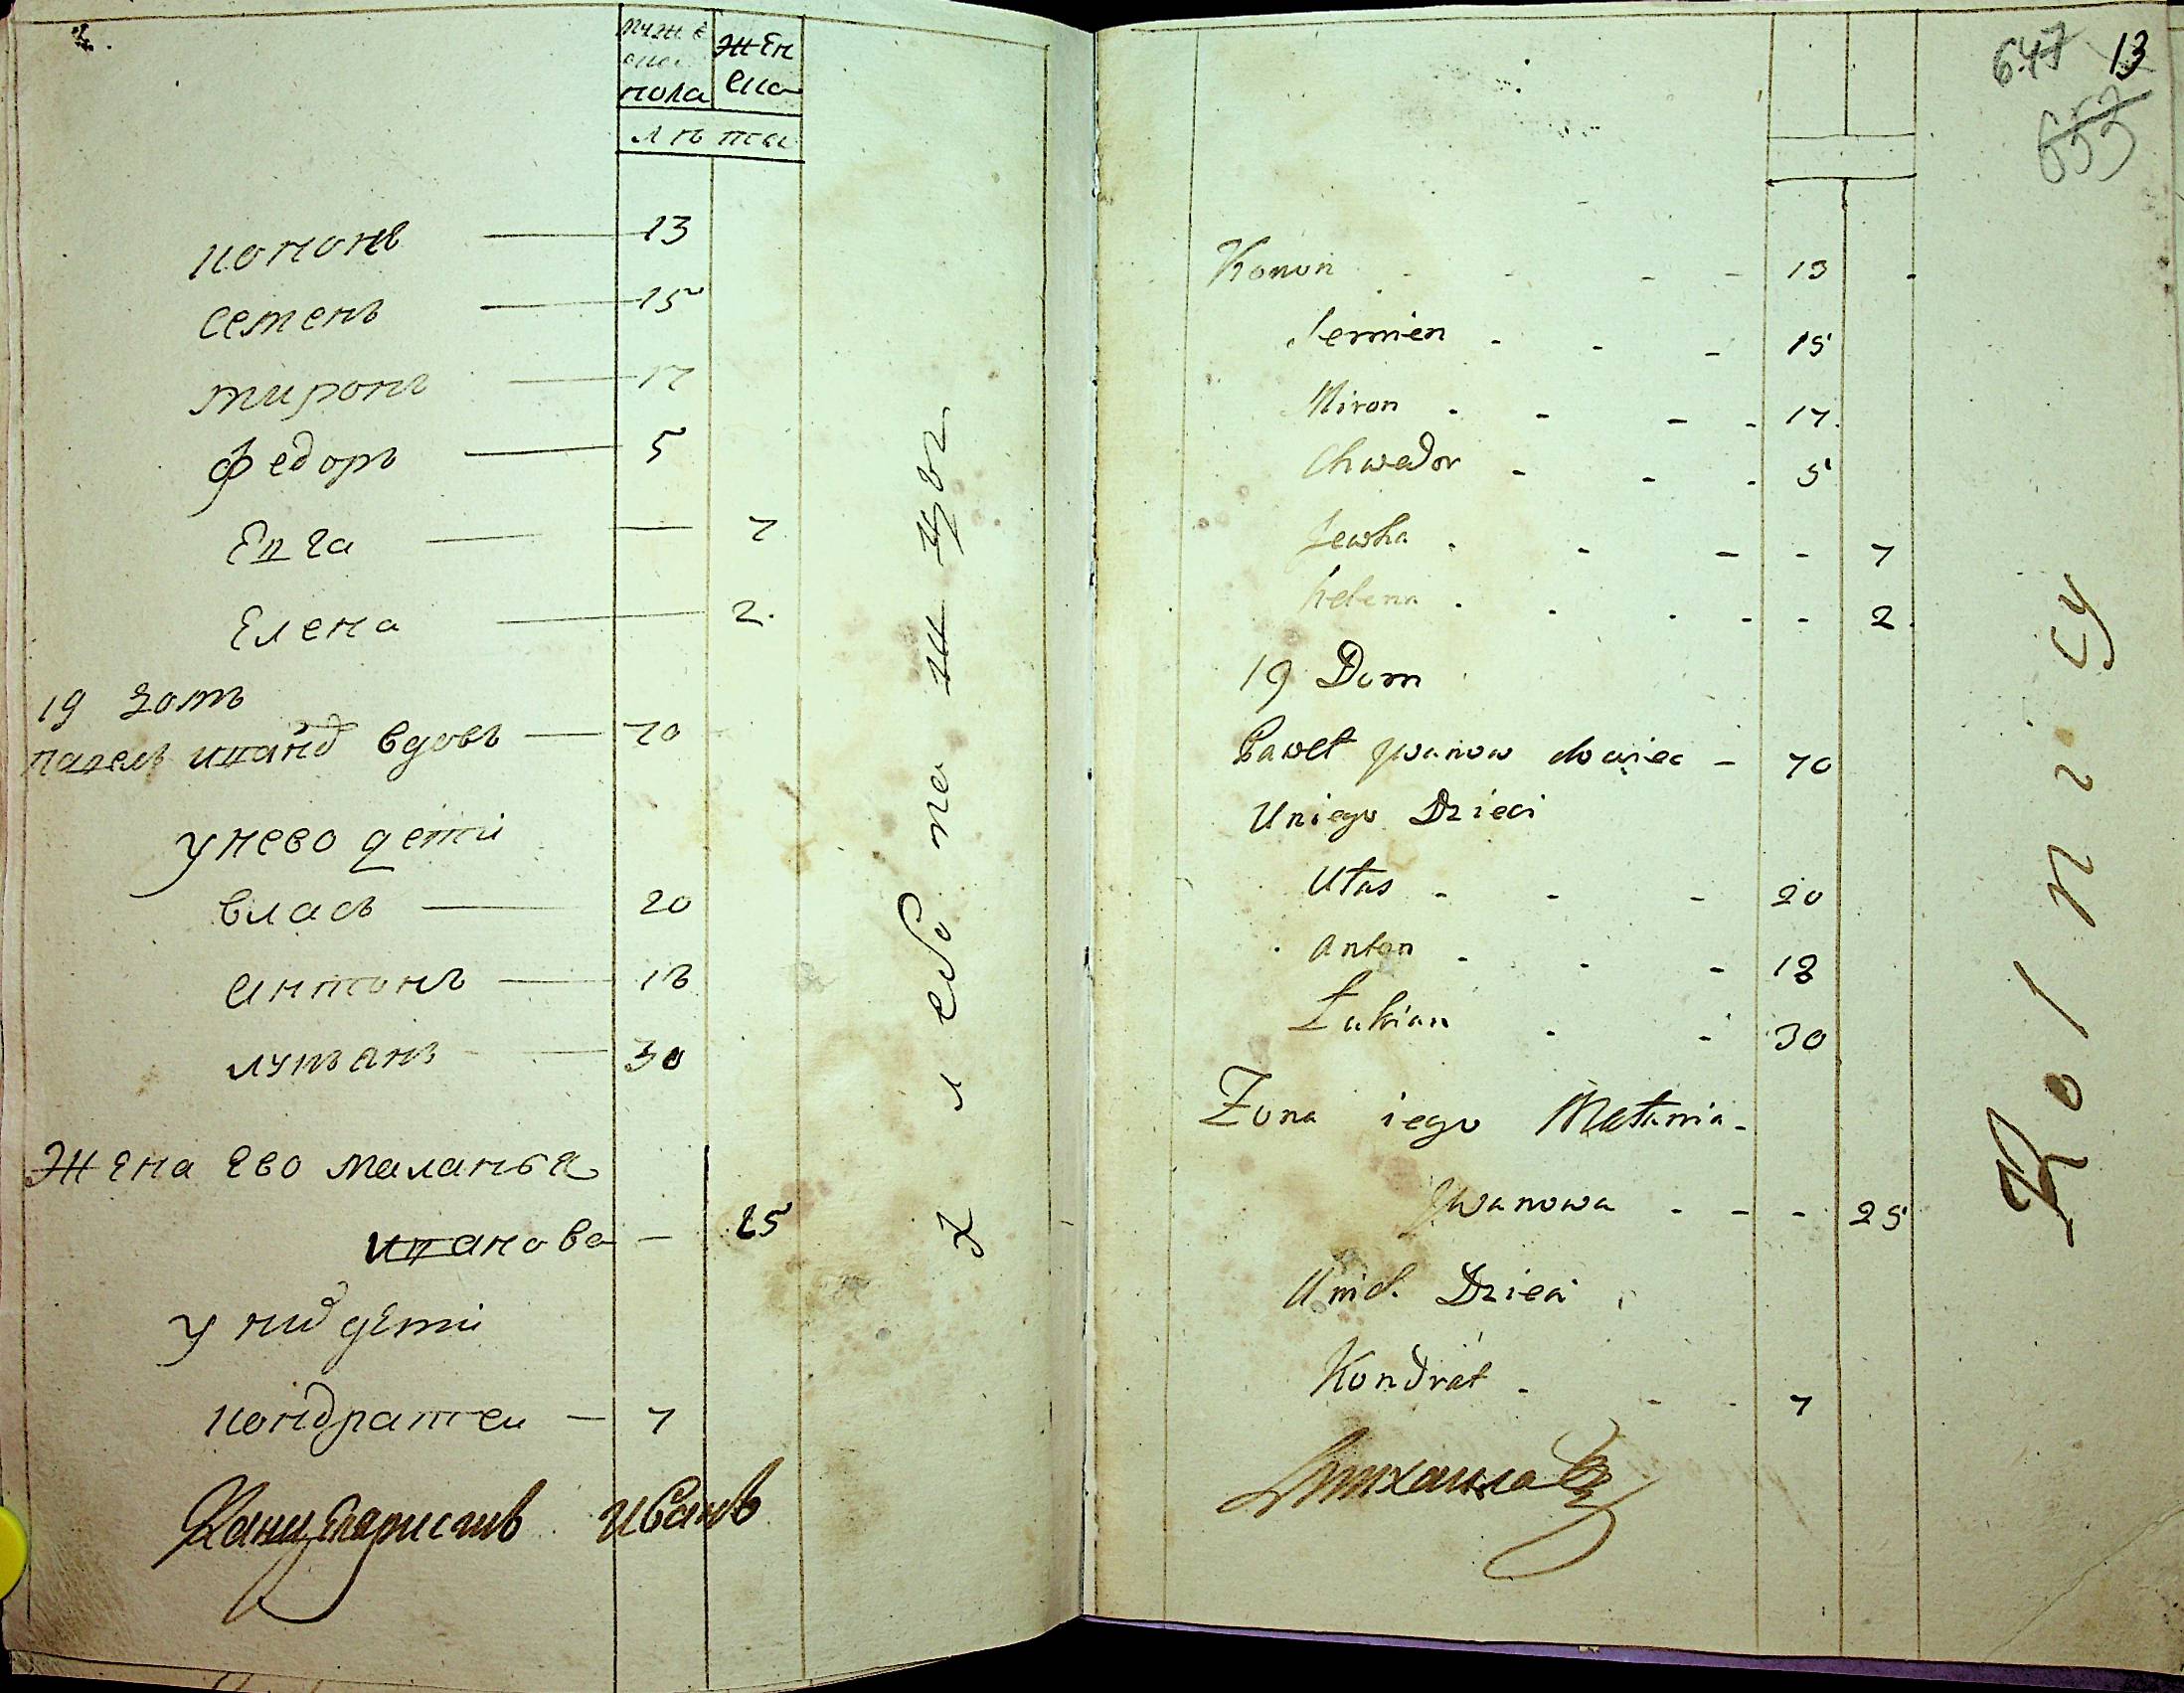 мужеска
пола
женска
лѣта
кононъ — 13
семенъ — 15
миронъ — 17
федоръ — 5
Евга — — 7
Елена — 2.
19 домъ
павелъ иванов вдовъ — 70
у нево дети
власъ — 20
антонъ — 18
лукъянъ — 30
жена ево маланья
иванова — 25
у них дети
кондратеи — 7
Канцеляристъ Иванъ
хлебопашцы
647 13
653
Konon - - - - 13
Semien - - - 15
Miron - - - - 17
Chwedor - - - 5
Jewha - - - - 7
Helena - - - - - 2
19 Dom
Paweł Jwanow dowiec - 70
U niego Dzieci
Ułas - - - 20
Anton - - - 18
Łukian - - 30
Zona iego Małania
Jwanowa - - - 25
U nich Dzieci
Kondrat - - - 7
Михаилов
Rolnicy